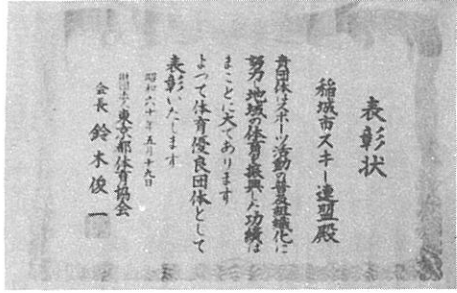 表彰状
稲城市スキー連盟殿
貴団体はスポーツ活動の普及組織化に
努力し地域の体育を振興した功績は
まことに大であります
よって体育優良団体として
表彰いたします
昭和六十年五月十九日
財団法人東京都体育協会
会長 鈴木俊一